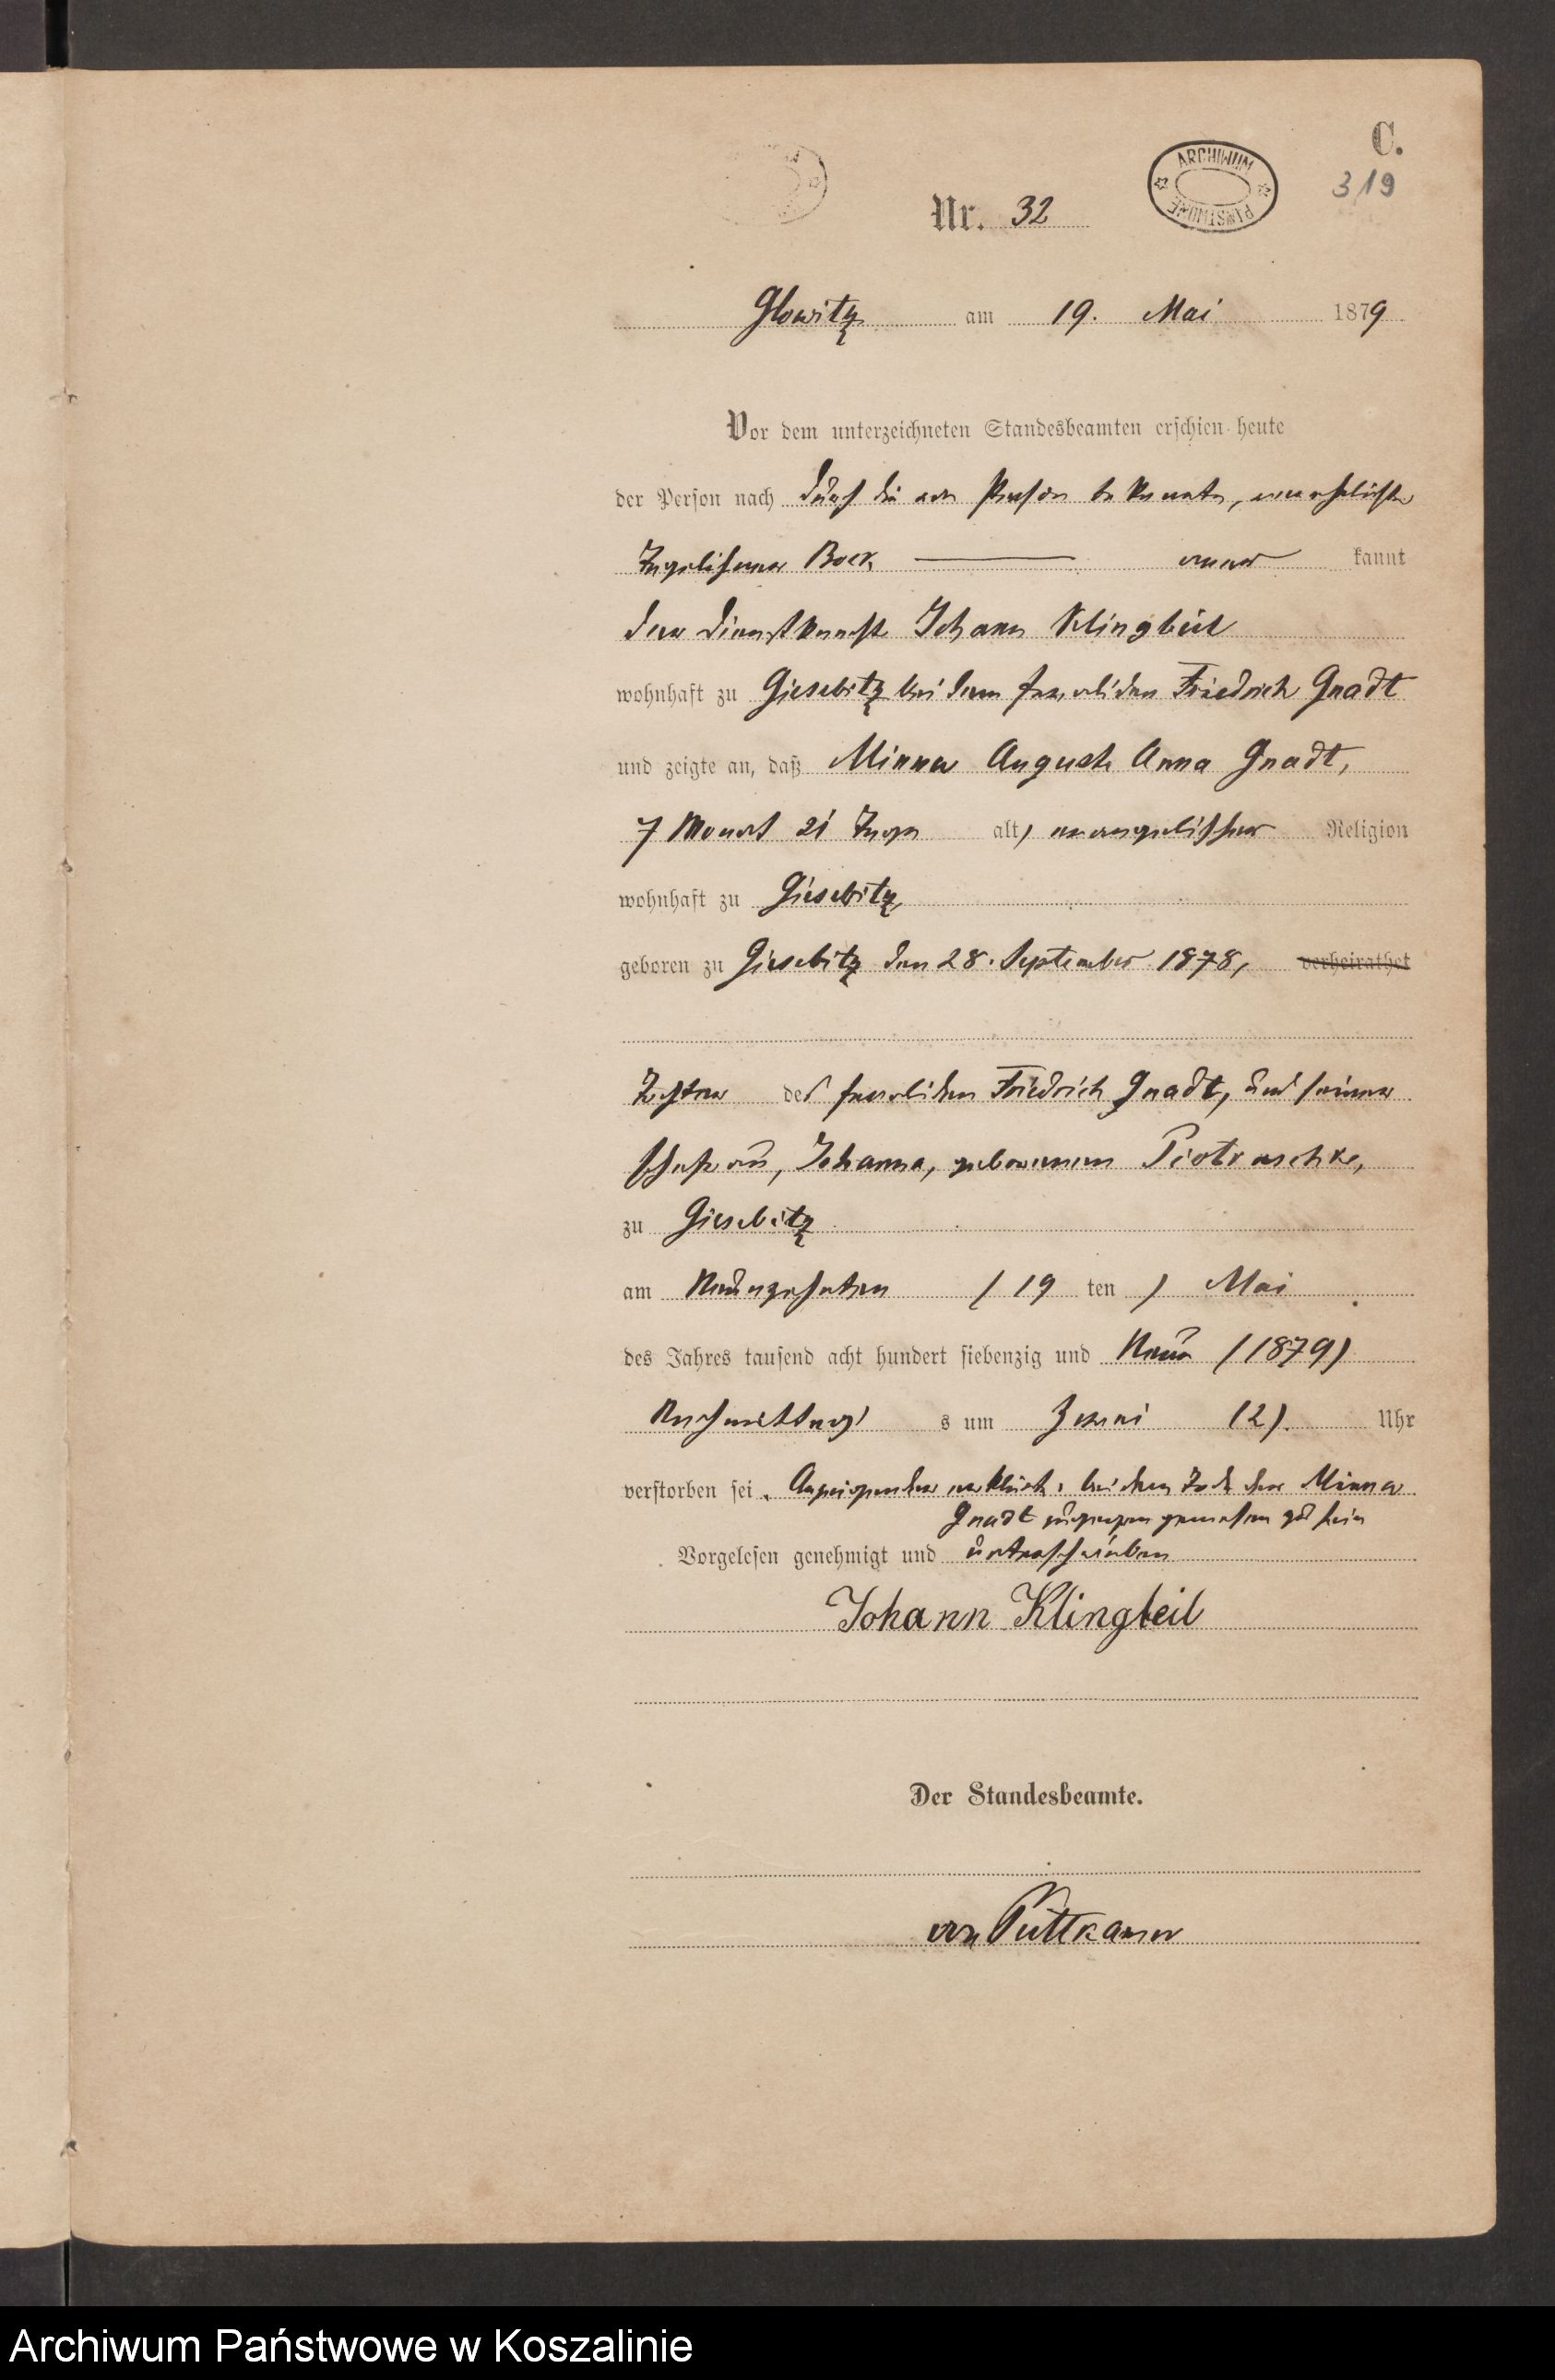 C.
319
ARCHIWUM PAŃSTWOWE
Nr. 32
Glowitz am 19. Mai 1879
Vor dem unterzeichneten Standesbeamten erschien heute
der Person nach durch die von Person bekannte, verehelichte
Boek aner kannt
der Dienstknecht Johann Klingbeil
wohnhaft zu Giesebitz bei dem Invaliden Friedrich Gnadt
und zeigte an, daß Minna Auguste Anna Gnadt,
7 Monat 21 Tage alt, evangelischer Religion
wohnhaft zu Giesebitz
geboren zu Giesebitz den 28. September 1878, verheirathet
Tochter des Invaliden Friedrich Gnadt, und seiner
Ehefrau, Johanna, geborenen Piotraschke,
zu Giesebitz
am Neunzehnten (19 ten) Mai
des Jahres tausend acht hundert siebenzig und Neun (1879)
Nachmittag s um Zwei (2). Uhr
verstorben sei. Anzeigender erklärte, bei dem Tode der Minna
Gnadt zugegen gewesen zu sein
Vorgelesen genehmigt und unterschrieben
Johann Klingbeil
Der Standesbeamte.
von Puttkamer
Archiwum Państwowe w Koszalinie